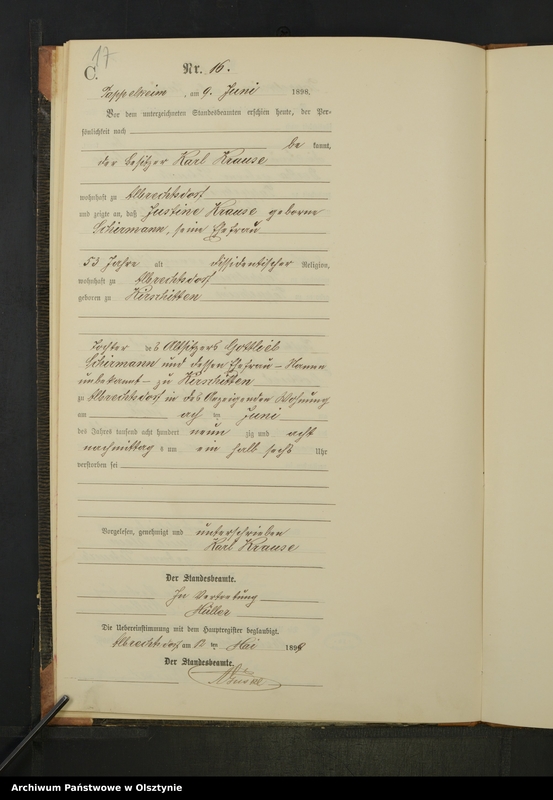 17
C.
Nr. 16.
am 9. Juni 1898.
Vor dem unterzeichneten Standesbeamten erschien heute, der Per-
sönlichkeit nach
be kannt,
der Besitzer Karl Krause
wohnhaft zu Albrechtsdorf
und zeigte an, daß Justine Krause geborne
Schirmann, seine Ehefrau
53 Jahre alt dissidentischer Religion,
wohnhaft zu Albrechtsdorf
geboren zu Kirschitten
Tochter des Altsitzers Gottlieb
Schirmann und dessen Ehefrau – Namen
unbekannt – zu Kirschitten
zu Albrechtsdorf in des Anzeigenden Wohnung
am acht ten Juni
des Jahres tausend acht hundert neun zig und acht
nachmittag s um ein halb sechs Uhr
verstorben sei
Vorgelesen, genehmigt und unterschrieben
Karl Krause
Der Standesbeamte.
In Vertretung
Müller
Die Uebereinstimmung mit dem Hauptregister beglaubigt.
Albrechtsdorf am ten Mai 1899
Der Standesbeamte.
Archiwum Państwowe w Olsztynie